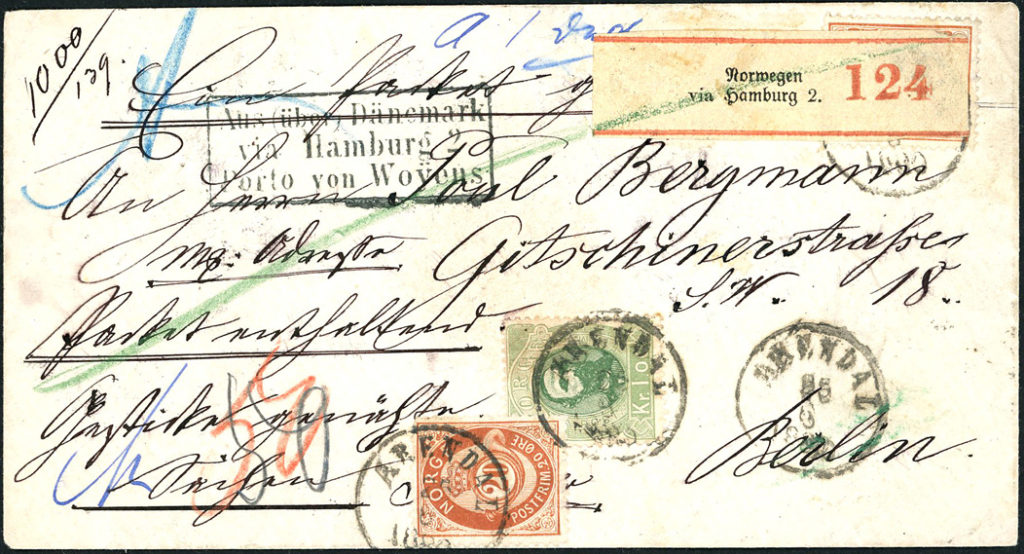 1000
139.
a 1
Ein Packet
Norwegen
via Hamburg 2.
124
Aus (über) Dänemark
via Hamburg 2
Porto von Woyens
An Herrn Paul Bergmann
Adresse Gitschinerstraße
S.W. 18.
Packet enthaltend
Gestickte genähte
Sachen
50
50
Berlin.
ARENDAL
KR 10
ARENDAL
ARENDAL
NORGE
20
POSTFRIM 20 ØRE